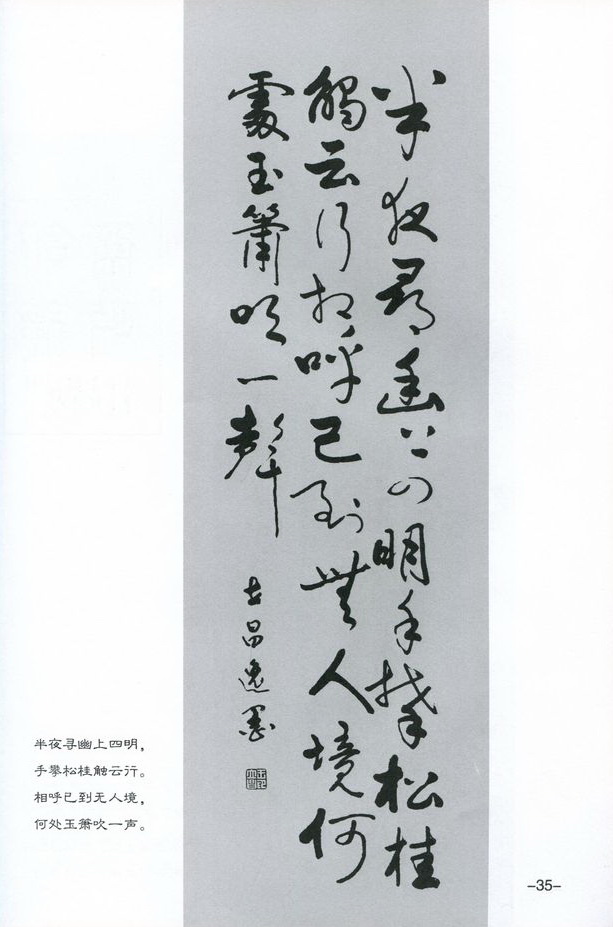 半夜尋幽上四明手攀松桂
觸云行相呼已到無人境何
處玉簫吹一聲
昌逸墨
半夜寻幽上四明，
手攀松桂触云行。
相呼已到无人境，
何处玉箫吹一声。
-35-